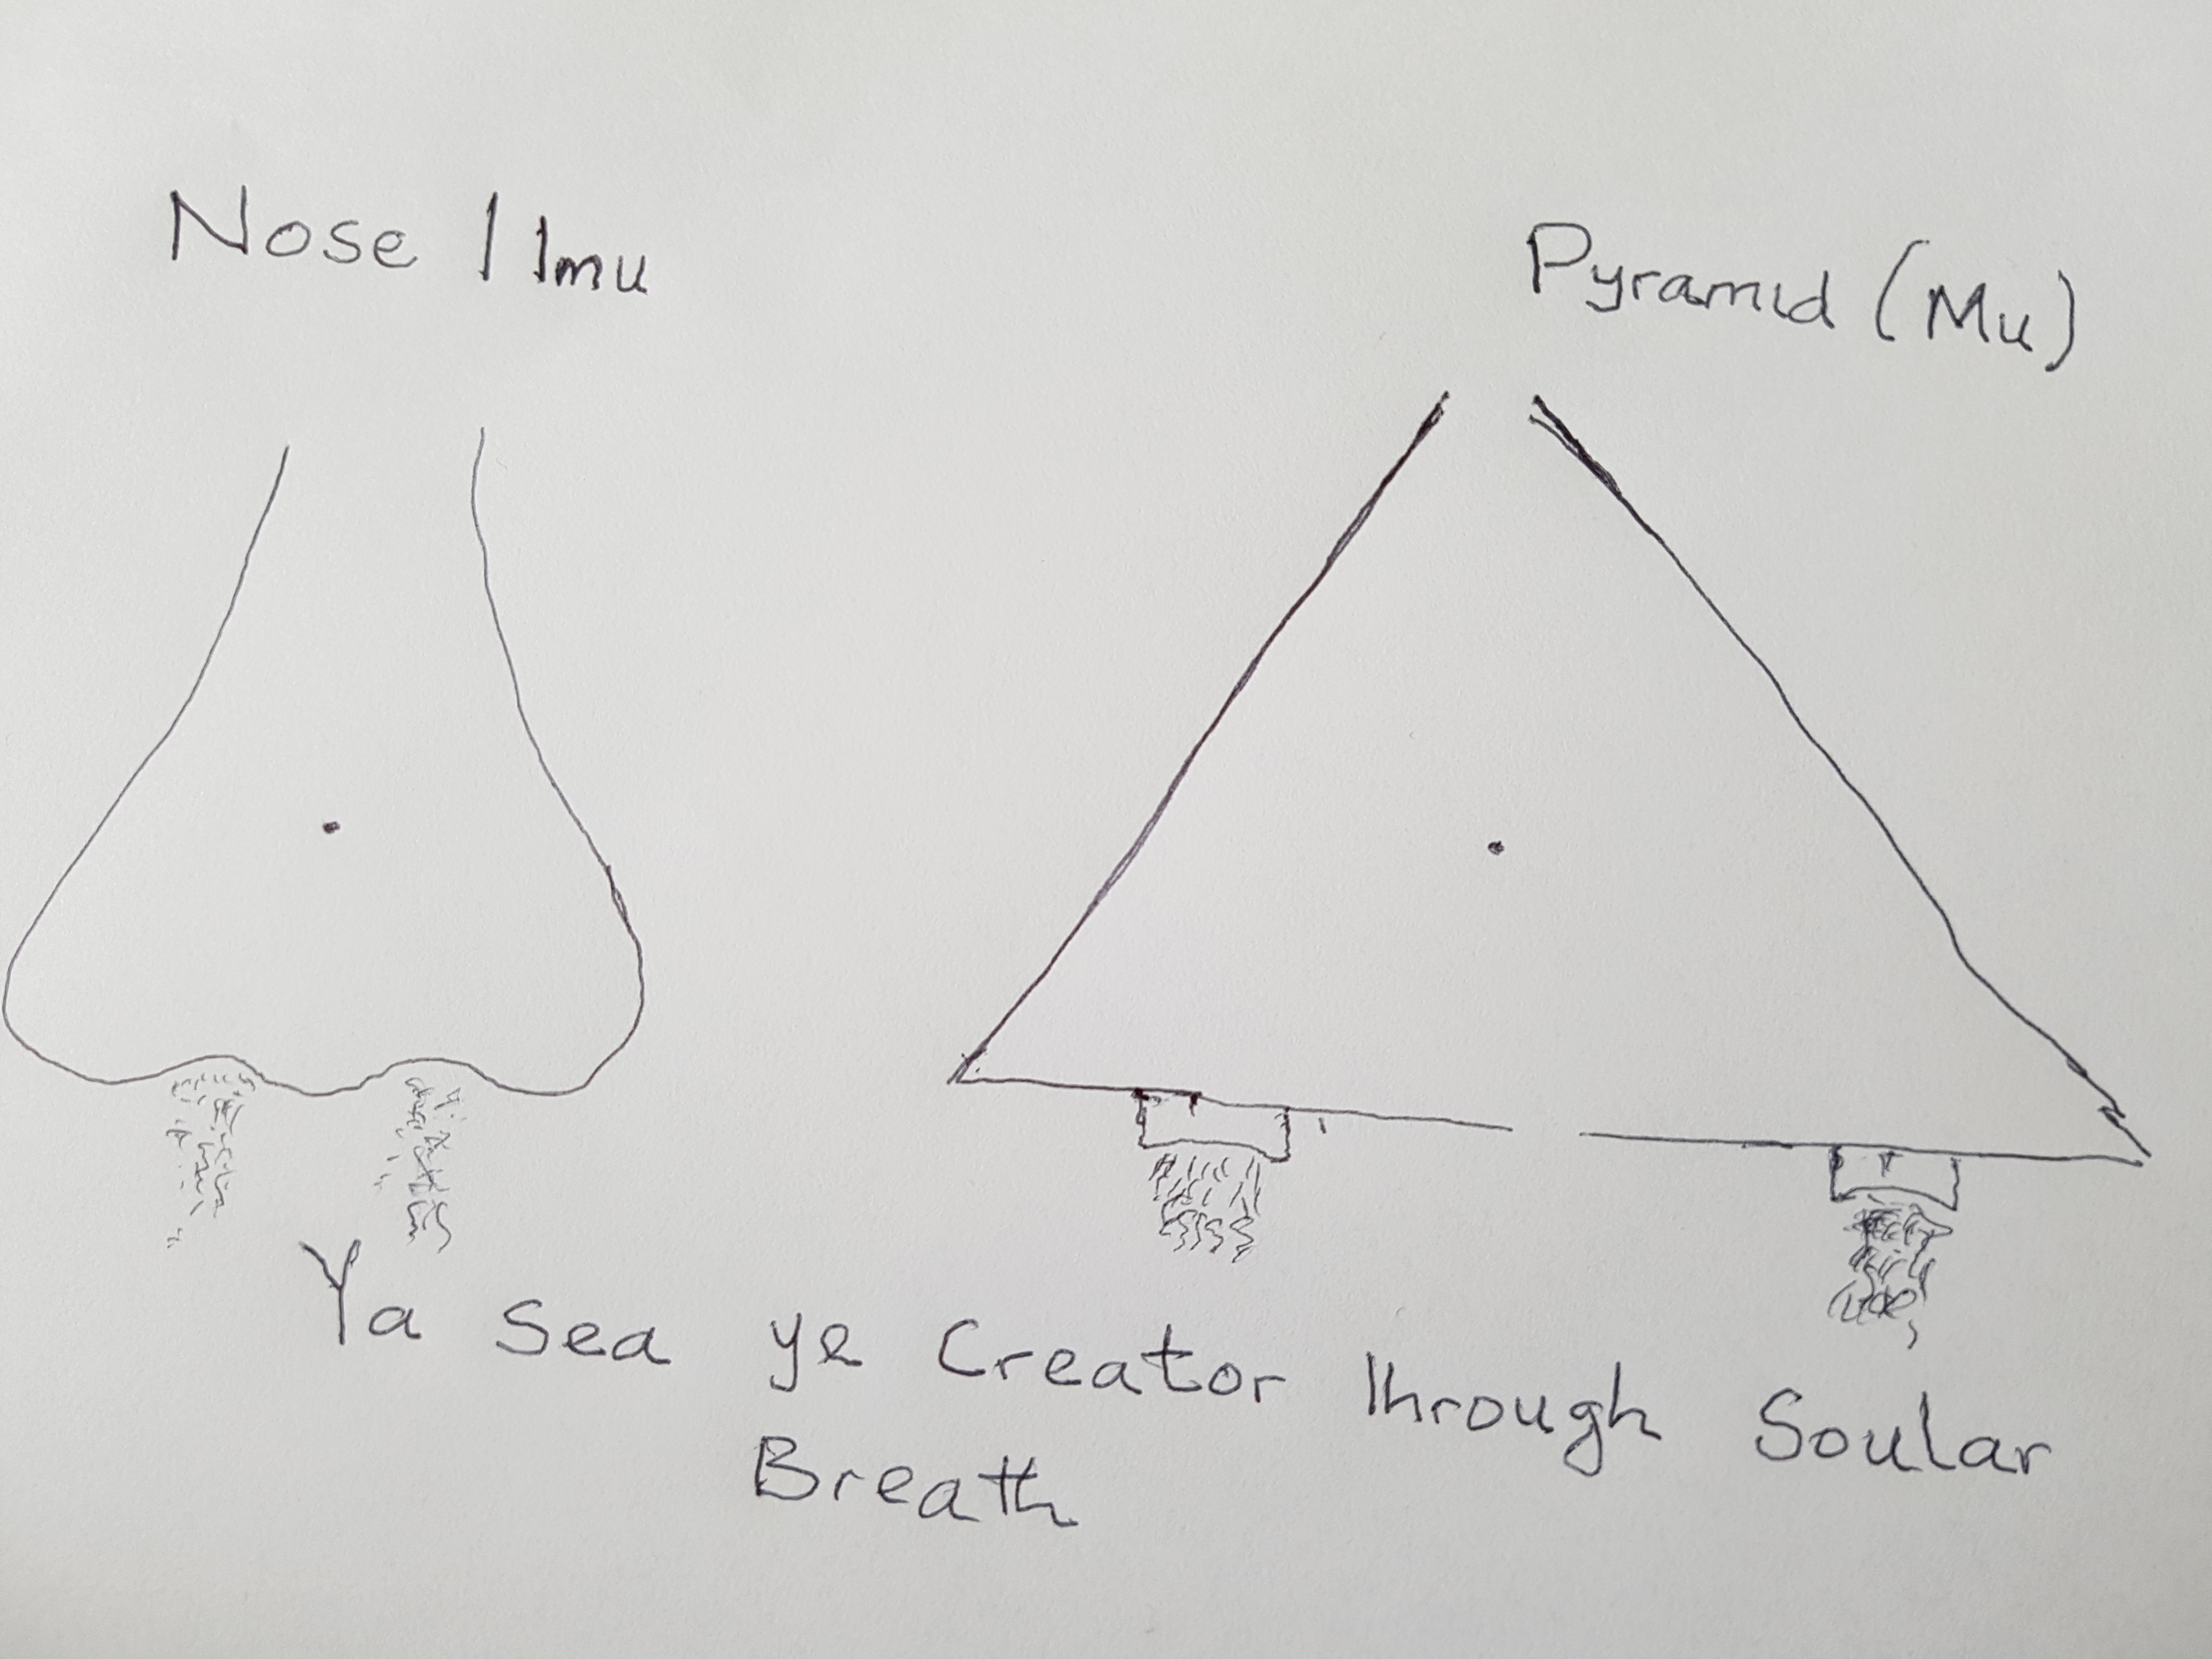 Nose | Imu
Pyramid (Mu)
Ya Sea ye Creator through Soular
Breath